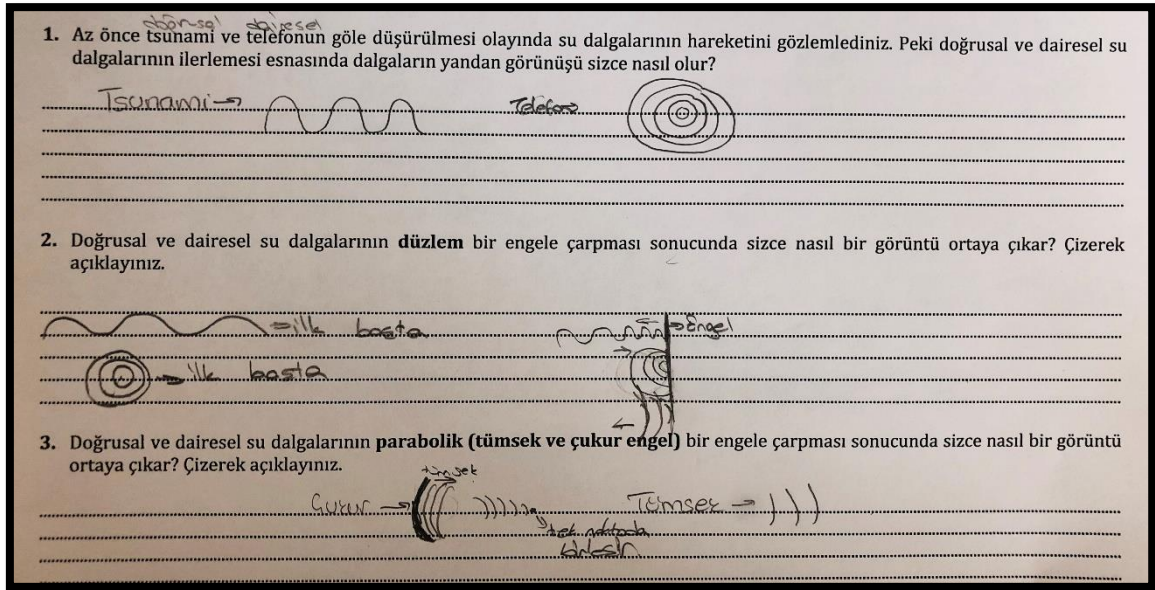 dönsel dairesel
1. Az önce tsunami ve telefonun göle düşürülmesi olayında su dalgalarının hareketini gözlemlediniz. Peki doğrusal ve dairesel su
dalgalarının ilerlemesi esnasında dalgaların yandan görünüşü sizce nasıl olur?
Tsunami→ Telefon
2. Doğrusal ve dairesel su dalgalarının düzlem bir engele çarpması sonucunda sizce nasıl bir görüntü ortaya çıkar? Çizerek
açıklayınız.
→ilk başta →Engel
→ilk başta
3. Doğrusal ve dairesel su dalgalarının parabolik (tümsek ve çukur engel) bir engele çarpması sonucunda sizce nasıl bir görüntü
ortaya çıkar? Çizerek açıklayınız.
tümsek
Çukur → Tümsek →
tek noktada